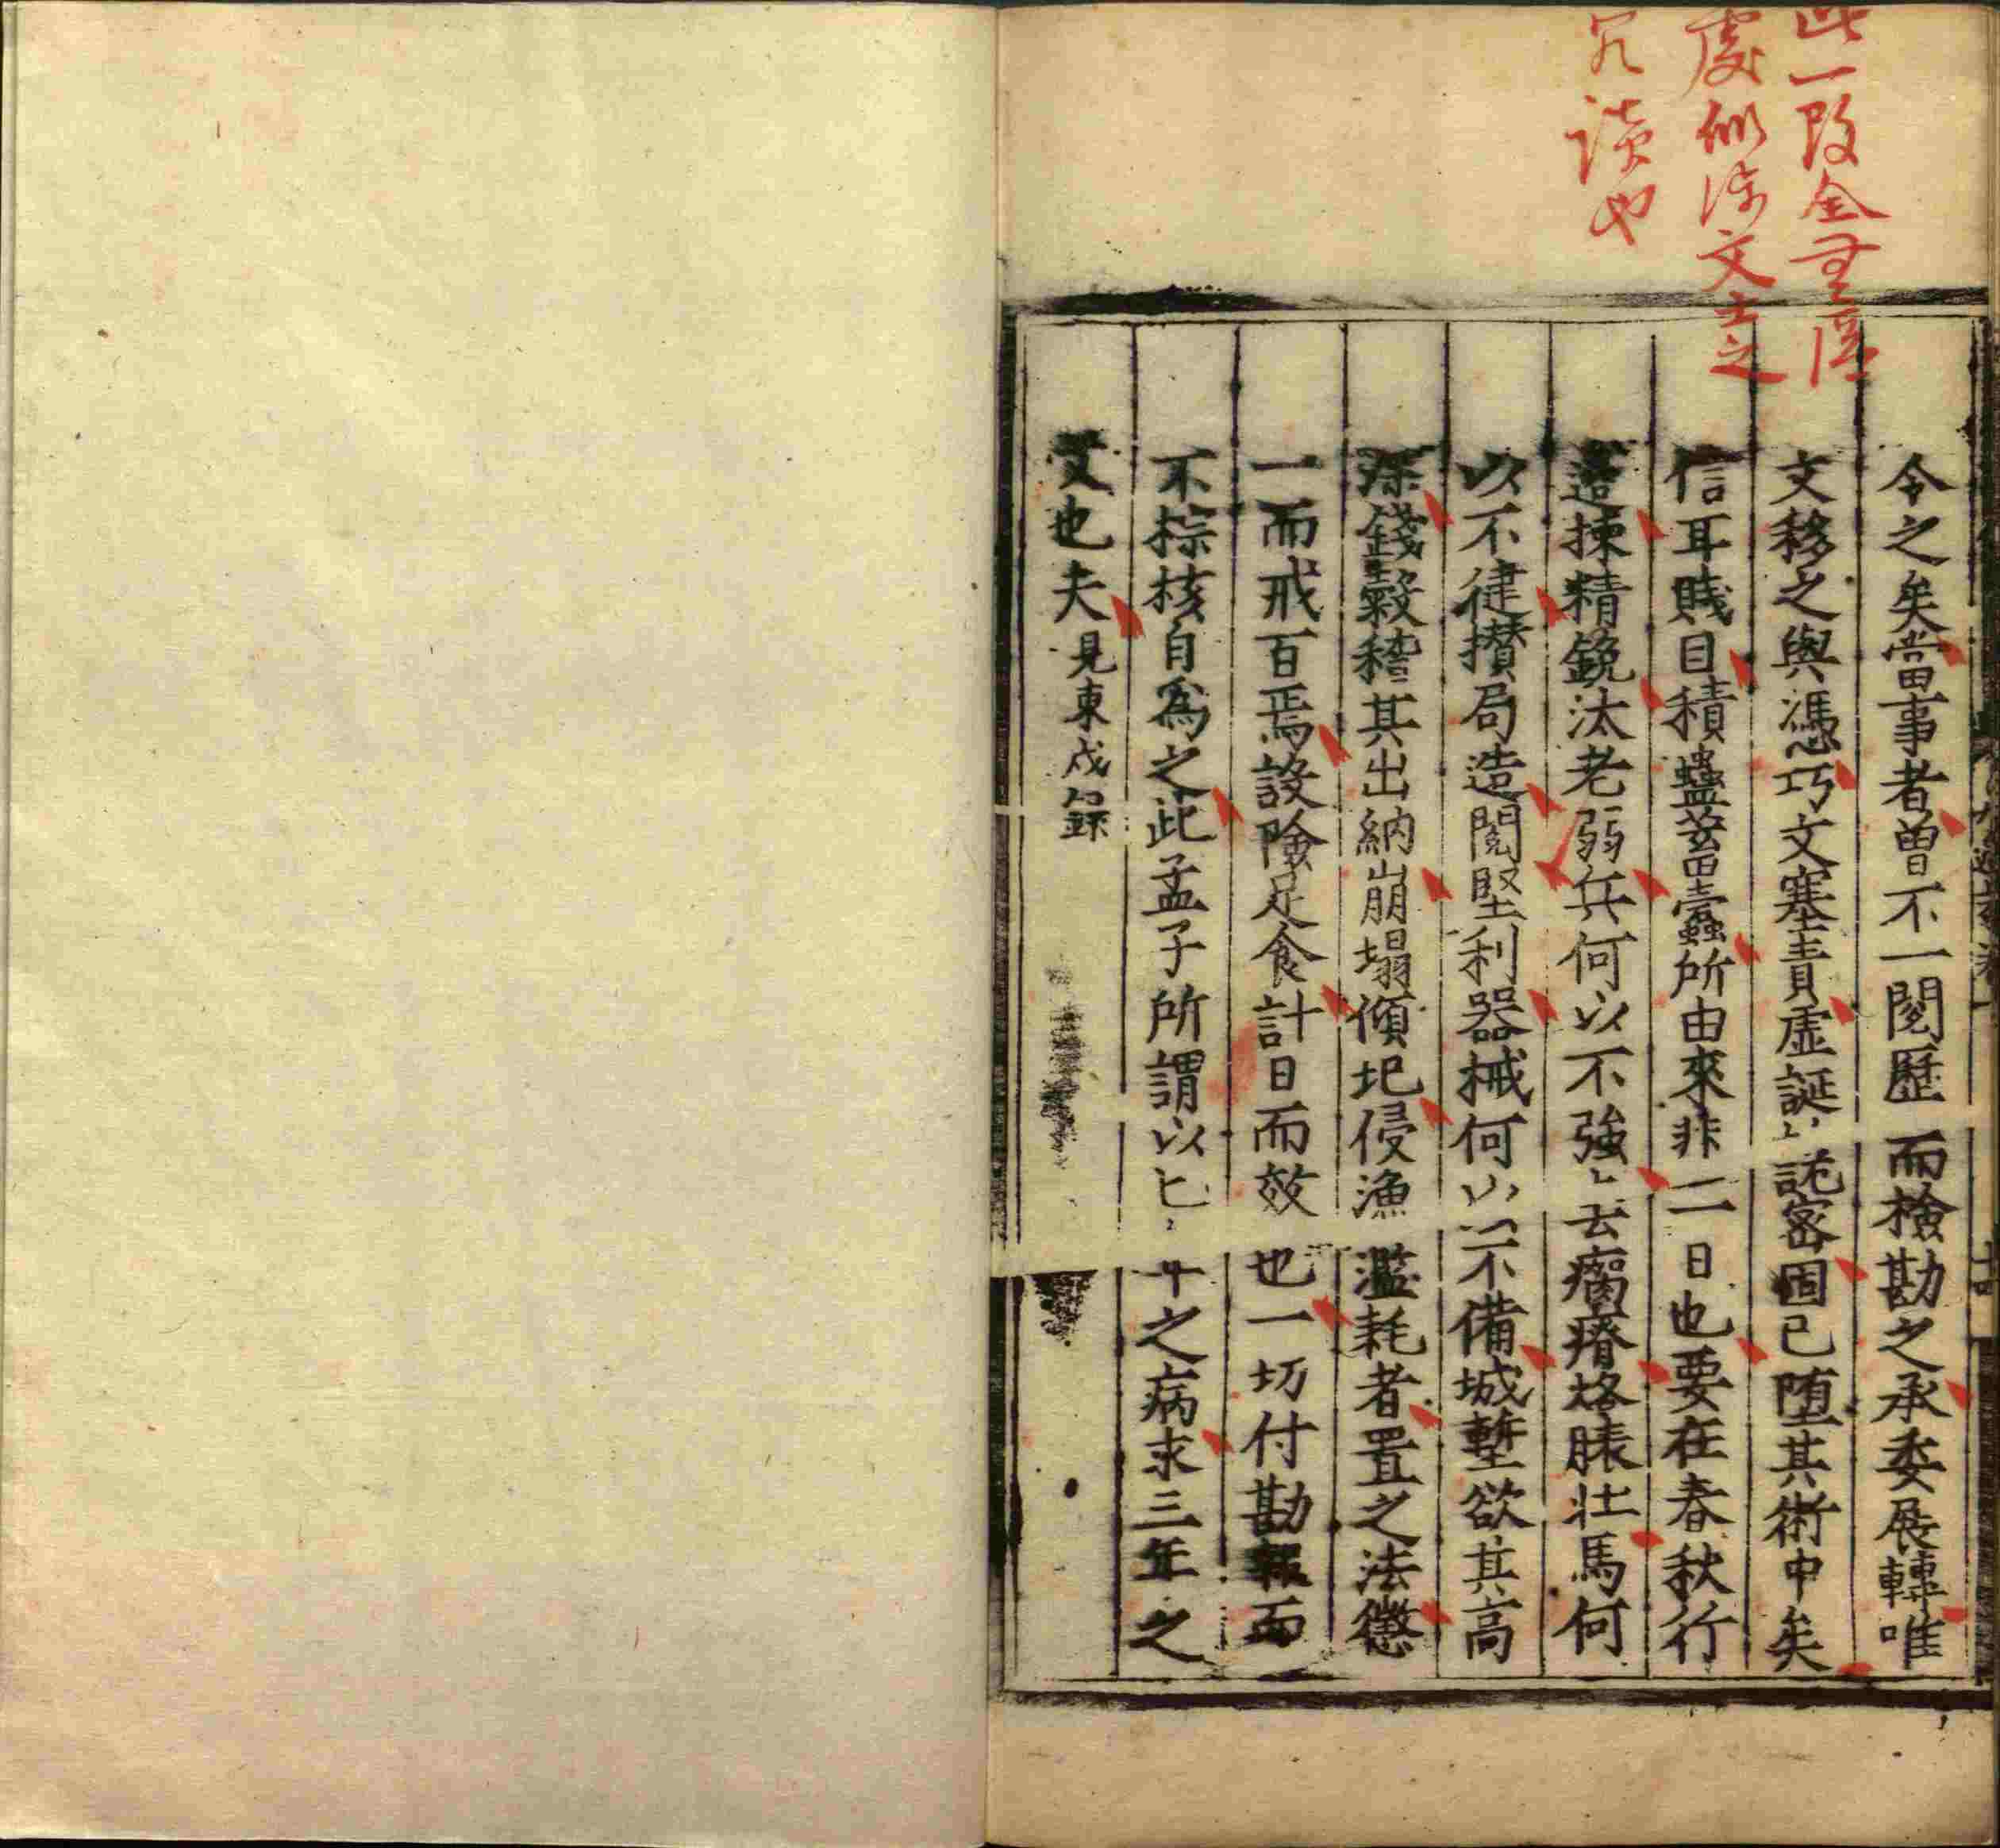 此一段全無區
處似涉文士之
冗談也
令之矣當事者曾不一閱歷而檢勘之承委展轉唯
文移之與憑巧文塞責虛誕詭密固已墮其術中矣
信耳賤目積蠱蓄蠹所由來非一日也要在春秋行
邊揀精銳汰老弱兵何以不強去瘸瘠格臕壯馬何
以不健攢局造閱堅利器械何以不備城塹欲其高
深錢穀稽其出納崩塌傾圯侵漁濫耗者置之法懲
一而戒百焉設險足食計日而效也一切付勘報而
不綜核自為之此孟子所謂以七年之病求三年之
艾也夫見東戍錄
十四